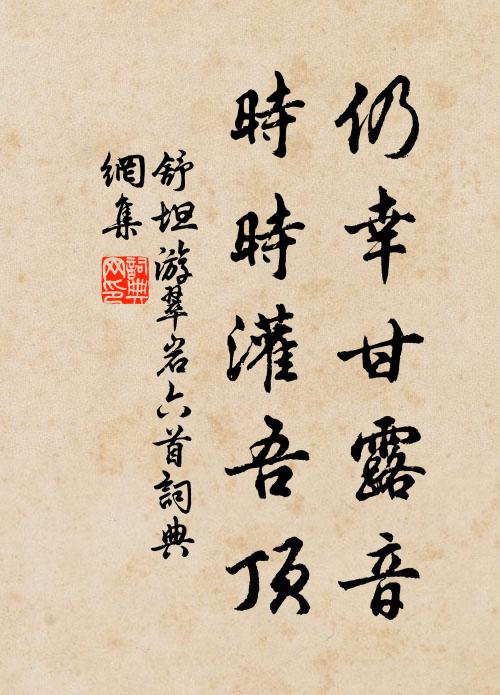 仍幸甘露音
時時灌吾頂
舒坦游翠岩六首詞典
網集
詞典网印